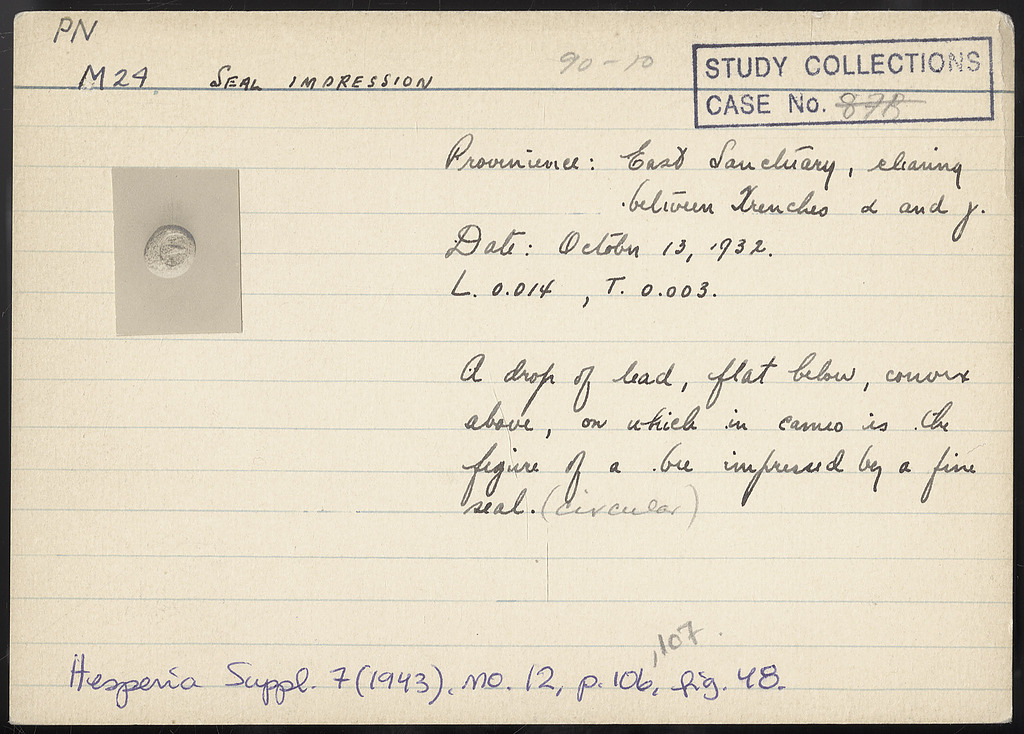 PN
M24 SEAL IMPRESSION
90-10
STUDY COLLECTIONS
CASE No. 87B
Provinience: East Sanctuary, clearing
between Trenches α and γ.
Date: October 13, 1932.
L. 0.014 , T. 0.003.
A drop of lead, flat below, convex
above, on which in cameo is the
figure of a bee impressed by a fine
seal. (circular)
,107
Hesperia Suppl. 7 (1943), no. 12, p. 106, fig. 48.